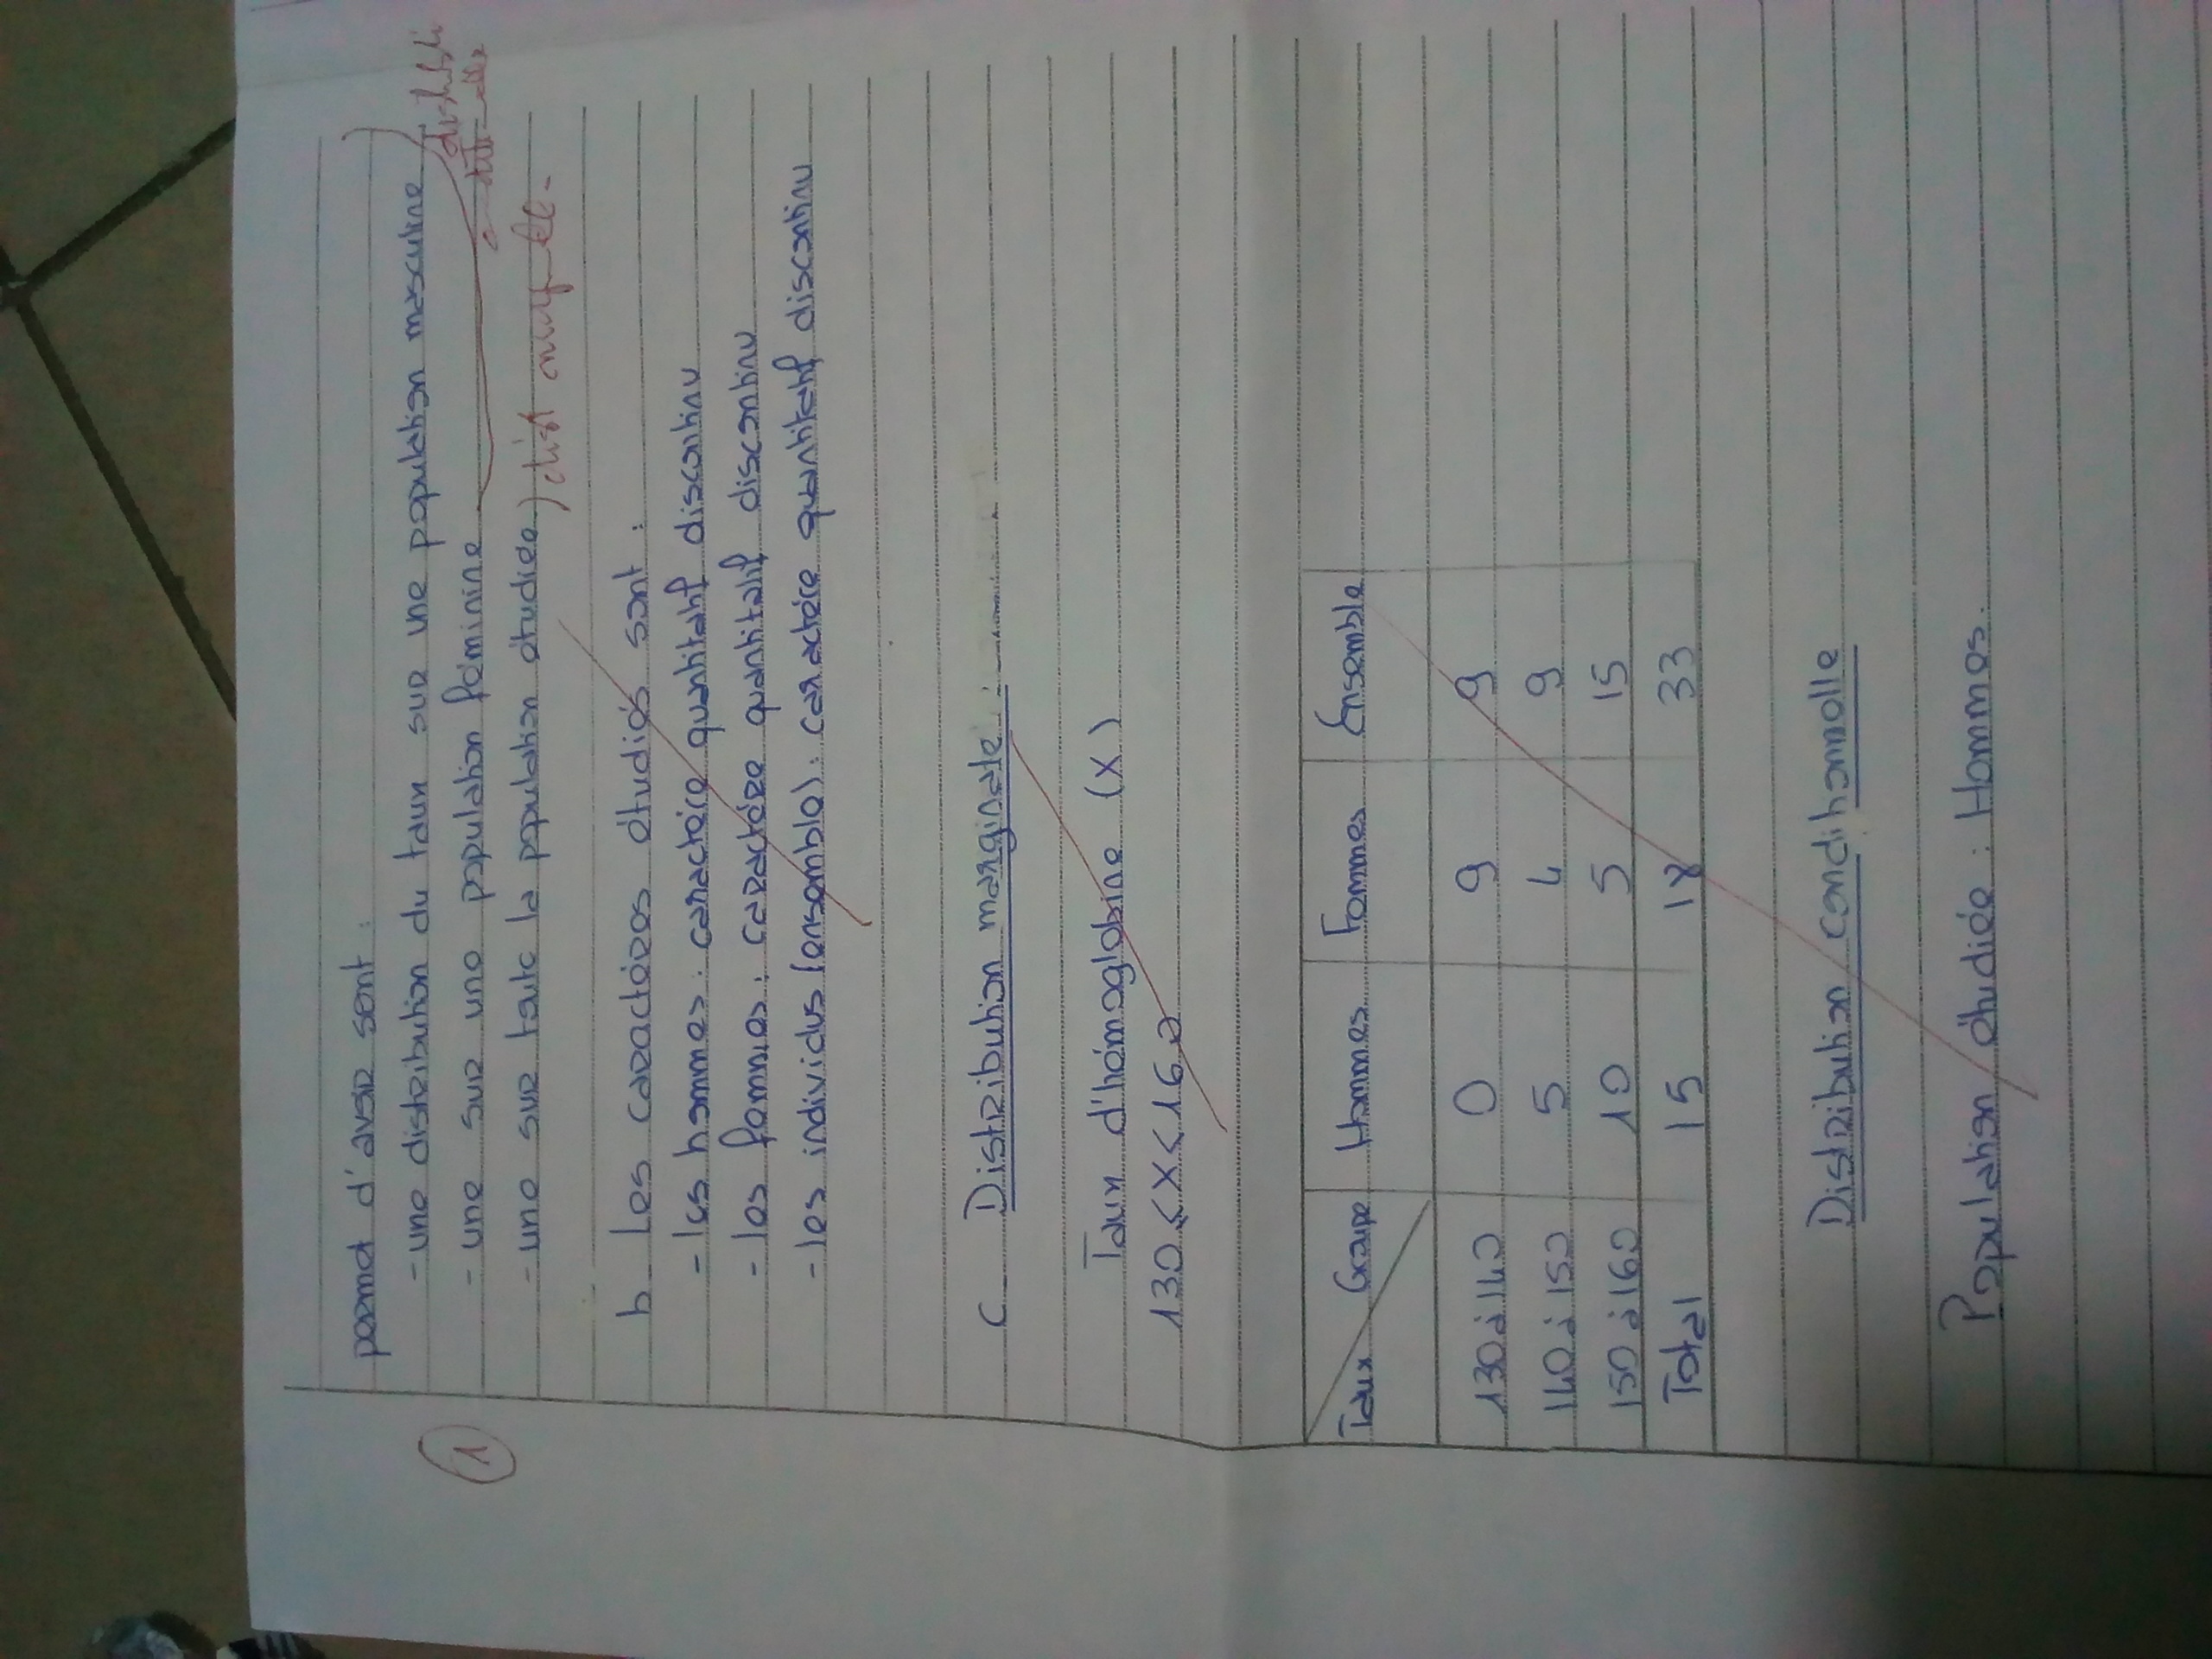 permet d'avoir sont :
- une distribution du taux sur une population masculine
1
- une sur une population féminine
- une sur toute la population étudiée) dist
b_ Les caractères étudiés sont :
- les hommes : caractère quantitatif discontinu
- les femmes : caractère quantitatif discontinu
- les individus (ensemble) : caractère quantitatif discontinu
c_ Distribution marginale :
Taux d'hémoglobine (X)
130 ≤ X < 160
Taux Groupe Hommes Femmes Ensemble
130 à 140 0 9 9
140 à 150 5 4 9
150 à 160 10 5 15
Total 15 18 33
Distribution conditionnelle
Population étudiée : Hommes.